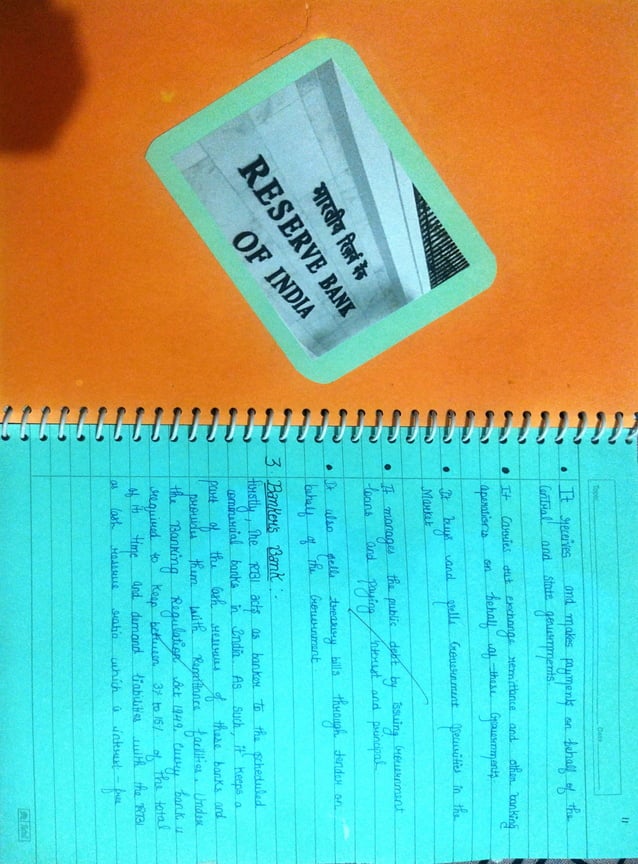 भारतीय रिज़र्व बैंक
RESERVE BANK
OF INDIA
11
Date
It receives and makes payments on behalf of the
Central and state governments.
It Carries out exchange remittance and other banking
operations on behalf of these Governments.
It buys and sells Government Securities in the
Market
It manages the public debt by issuing Government
loans and paying interest and principal.
It also sells treasury bills through tender on
behalf of the Government
3. Banker's Bank :-
Firstly, The RBI acts as banker to the scheduled
commercial banks in India. As such it keeps a
part of the cash reserves of these banks and
provides them with Remittance facilities. Under
the Banking Regulation Act 1949. Every bank is
required to keep between 3% to 15% of the total
of its time and demand liabilities with the RBI
as cash reserve ratio which is interest free